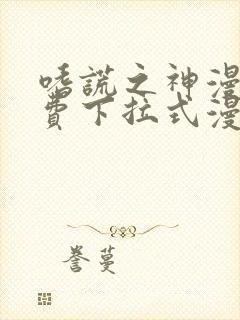 嗜謊之神漫
費下拉式漫
誉蔓